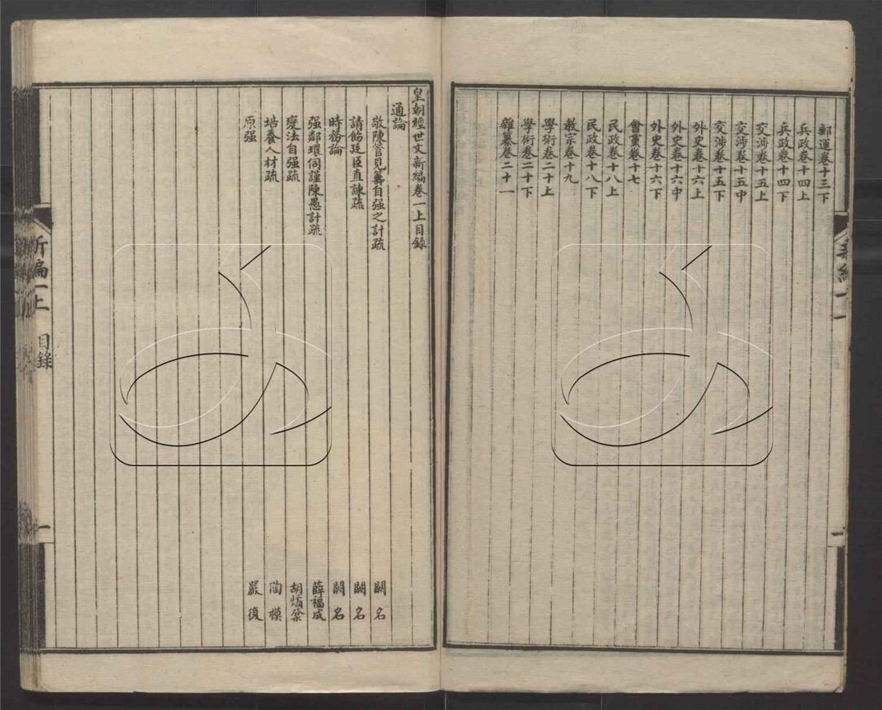 郵運卷十三下
兵政卷十四上
兵政卷十四下
交涉卷十五上
交涉卷十五中
交涉卷十五下
外史卷十六上
外史卷十六中
外史卷十六下
會黨卷十七
民政卷十八上
民政卷十八下
教宗卷十九
學術卷二十上
學術卷二十下
雜纂卷二十一
皇朝經世文新編卷一上目錄
通論
敬陳管見籌自强之計疏 闕名
請飭廷臣直諫疏 闕名
時務論 闕名
强鄰環伺謹陳愚計疏 薛福成
變法自强疏 胡燏棻
培養人材疏 陶模
原强 嚴復
新編一上 目錄 一